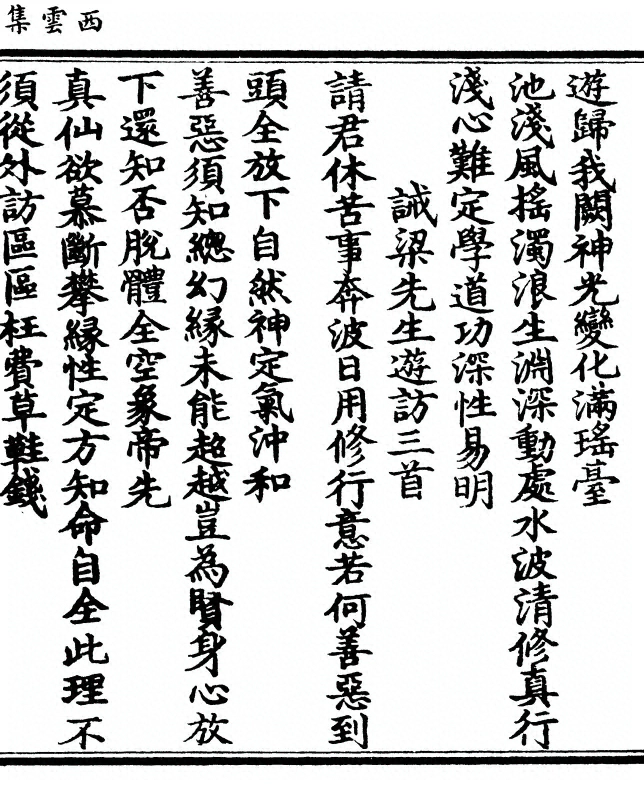 西雲集
遊歸我闕神光變化滿瑤臺
池淺風搖濁浪生淵深動處水波清修真行
淺心難定學道功深性易明
誡梁先生遊訪三首
請君休苦事奔波日用修行意若何善惡到
頭全放下自然神定氣沖和
善惡須知總幻緣未能超越豈為賢身心放
下還知否脫體全空象帝先
真仙欲慕斷攀緣性定方知命自全此理不
須從外訪區區枉費草鞋錢